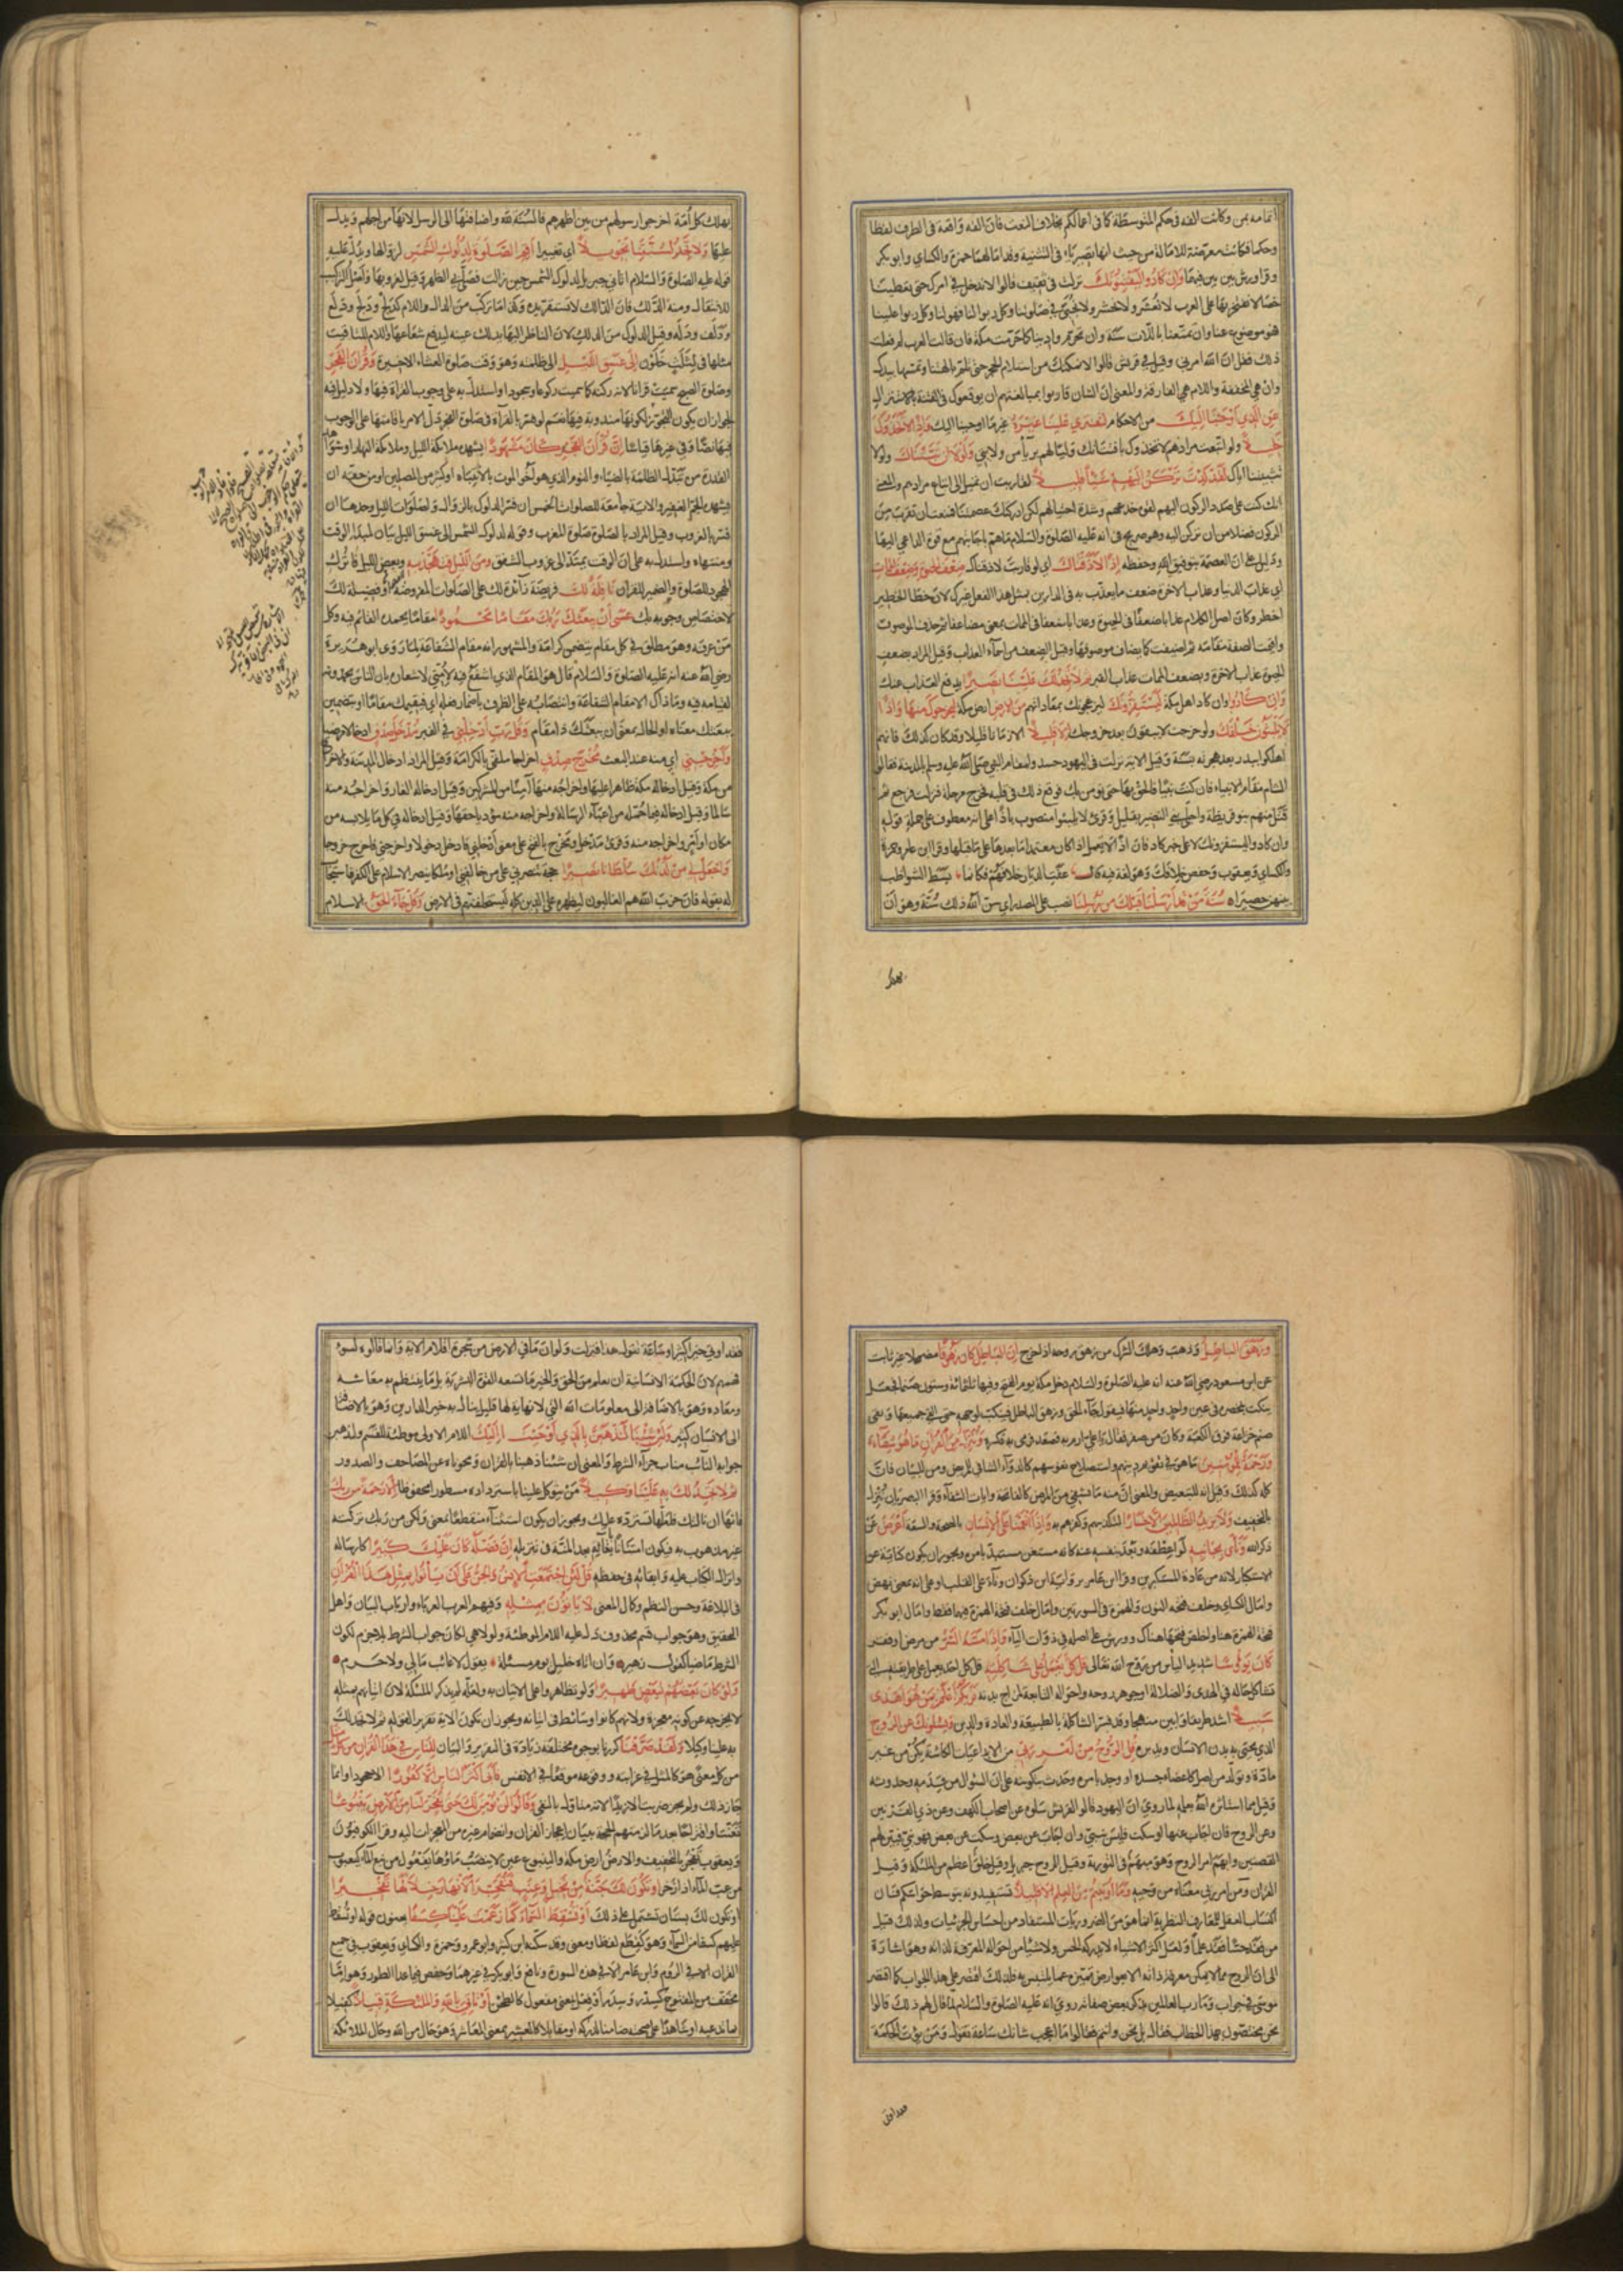 اتمامه بمن وكانت الفه فى حكم المتوسطة كما فى اعمالكم بخلاف النعت فان الفه واقعة فى الطرف لفظا
وحكما فكانت معرضة للامالة من حيث انها تصير ياء فى التثنية وقد امالهما حمزة والكسائى وابو بكر
وقرا ورش بين بين فيهما وَاِنْ كَادُوا لَيَفْتِنُونَكَ نزلت فى ثقيف قالوا لا ندخل فى امرك حتى تعطينا
خصالا نفتخر بها على العرب لا نعشر ولا نحشر ولا نجبى فى صلوتنا وكل ربوا لنا فهو لنا وكل ربوا علينا
فهو موضوع عنا وان تمتعنا باللات سنة وان تحرم وادينا كما حرمت مكة فان قالت العرب لم فعلت
ذلك فقل ان الله امرنى وقيل فى قريش قالوا لا نمكنك من استلام الحجر حتى تلم بالهتنا وتمسها بيدك
وان هى المخففة واللام هى الفارقة والمعنى ان الشان قاربوا بمبالغتهم ان يوقعوك فى الفتنة بالاستنزال
عَنِ الَّذِي اَوْحَيْنَا اِلَيْكَ من الاحكام لِتَفْتَرِيَ عَلَيْنَا غَيْرَهُ غير ما اوحينا اليك وَاِذًا لَاتَّخَذُوكَ
خَلِيلًا ولو اتبعت مرادهم لاتخذوك بافتتانك وليا لهم بريأ من ولايتى وَلَوْلَا اَنْ ثَبَّتْنَاكَ ولولا
تثبيتنا اياك لَقَدْ كِدْتَ تَرْكَنُ اِلَيْهِمْ شَيْئًا قَلِيلًا لقاربت ان تميل الى اتباع مرادهم والمعنى
انك كنت على صدد الركون اليهم لقوة خدعهم وشدة احتيالهم لكن ادركتك عصمتنا فمنعت ان تقرب من
الركون فضلا من ان تركن اليه وهو صريح فى انه عليه الصلوة والسلام ما هم باجابتهم مع قوة الداعى اليها
ودليل على ان العصمة بتوفيق الله وحفظه اِذًا لَاَذَقْنَاكَ اى لو قاربت لاذقناك ضِعْفَ الْحَيٰوةِ وَضِعْفَ الْمَمَاتِ
اى عذاب الدنيا وعذاب الاخرة ضعف ما يعذب به فى الدارين بمثل هذا الفعل غيرك لان خطا الخطير
اخطر وكان اصل الكلام عذابا ضعفا فى الحيوة وعذابا ضعفا فى الممات بمعنى مضاعفا ثم حذف الموصوف
واقيمت الصفة مقامه ثم اضيفت كما يضاف موصوفها وقيل الضعف من اسماء العذاب وقيل المراد بضعف
الحيوة عذاب الاخرة وبضعف الممات عذاب القبر ثُمَّ لَا تَجِدُ لَكَ عَلَيْنَا نَصِيرًا يدفع العذاب عنك
وَاِنْ كَادُوا وان كاد اهل مكة لَيَسْتَفِزُّونَكَ ليزعجونك بمعاداتهم مِنَ الْاَرْضِ ارض مكة لِيُخْرِجُوكَ مِنْهَا وَاِذًا
لَا يَلْبَثُونَ خَلْفَكَ ولو خرجت لا يبقون بعد خروجك اِلَّا قَلِيلًا الا زمانا قليلا وقد كان كذلك فانهم
اهلكوا ببدر بعد هجرته بسنة وقيل الاية نزلت فى اليهود حسدوا مقام النبى صلى الله عليه وسلم بالمدينة فقالوا
الشام مقام الانبياء فان كنت نبيا فالحق بها حتى نؤمن بك فوقع ذلك فى قلبه فخرج مرحلة فنزلت فرجع ثم
قتل منهم بنو قريظة واجلى بنو النضير بقليل وقرئ لا يلبثوا منصوبا باذا على انه معطوف على جملة قوله
وان كادوا ليستفزونك لا على خبر كاد فان اذا لا تعمل اذا كان معتمدا ما بعدها على ما قبلها وقرا ابن عامر وحمزة
والكسائى ويعقوب وحفص خلافك وهو لغة فيه قال عفت الديار خلافهم فكانما بسط الشواطب
بينهن حصيرا سُنَّةَ مَنْ قَدْ اَرْسَلْنَا قَبْلَكَ مِنْ رُسُلِنَا نصب على المصدر اى سن الله ذلك سنة وهو ان
يهلك
يهلك كل امة اخرجوا رسولهم من بين اظهرهم فالسنة لله واضافتها الى الرسل لانها من اجلهم ويدل
عليها وَلَا تَجِدُ لِسُنَّتِنَا تَحْوِيلًا اى تغييرا اَقِمِ الصَّلٰوةَ لِدُلُوكِ الشَّمْسِ لزوالها ويدل عليه
قوله عليه الصلوة والسلام اتانى جبريل لدلوك الشمس حين زالت فصلى بى الظهر وقيل لغروبها واصل التركيب
للانتقال ومنه الدلك فان الدالك لا تستقر يده وكذا ما تركب من الدال واللام كدلج ودلح ودلع
ودلف ودله وقيل الدلوك من الدلك لان الناظر اليها يدلك عينه ليدفع شعاعها واللام للتاقيت
مثلها فى لثلث خلون اِلٰى غَسَقِ اللَّيْلِ الى ظلمته وهو وقت صلوة العشاء الاخيرة وَقُرْاٰنَ الْفَجْرِ
وصلوة الصبح سميت قرانا لانه ركنه كما سميت ركوعا وسجودا واستدل به على وجوب القراة فيها ولا دليل فيه
لجواز ان يكون التجوز لكونها مندوبة فيها نعم لو فسر بالقراة فى صلوة الفجر دل الامر باقامتها على الوجوب
فيها نصا وفى غيرها قياسا اِنَّ قُرْاٰنَ الْفَجْرِ كَانَ مَشْهُودًا يشهده ملائكة الليل وملائكة النهار او شواهد
القدرة من تبدل الظلمة بالضياء والنوم الذى هو اخو الموت بالانتباه او كثير من المصلين او من حقه ان
يشهده الجم الغفير والاية جامعة للصلوات الخمس ان فسر الدلوك بالزوال ولصلوات الليل وحدها ان
فسر بالغروب وقيل المراد بالصلوة صلوة المغرب وقوله لدلوك الشمس الى غسق الليل بيان لمبدا الوقت
ومنتهاه واستدل به على ان الوقت يمتد الى غروب الشفق وَمِنَ اللَّيْلِ فَتَهَجَّدْ بِهِ وبعض الليل فاترك
الهجود للصلوة والضمير للقران نَافِلَةً لَكَ فريضة زائدة لك على الصلوات المفروضة او فضيلة لك
لاختصاص وجوبه بك عَسٰى اَنْ يَبْعَثَكَ رَبُّكَ مَقَامًا مَحْمُودًا مقاما يحمده القائم فيه وكل
من عرفه وهو مطلق فى كل مقام يتضمن كرامة والمشهور انه مقام الشفاعة لما روى ابو هريرة
رضى الله عنه انه عليه الصلوة والسلام قال هو المقام الذى اشفع فيه لامتى ولاشعاره بان الناس يحمدونه
لقيامه فيه وما ذاك الا مقام الشفاعة وانتصابه على الظرف باضمار فعله اى فيقيمك مقاما او بتضمين
يبعثك معناه او الحال بمعنى ان يبعثك ذا مقام وَقُلْ رَبِّ اَدْخِلْنِي فى القبر مُدْخَلَ صِدْقٍ ادخالا مرضيا
وَاَخْرِجْنِي اى منه عند البعث مُخْرَجَ صِدْقٍ اخراجا ملقى بالكرامة وقيل المراد ادخال المدينة والاخراج
من مكة وقيل ادخاله مكة ظاهرا عليها واخراجه منها آمنا من المشركين وقيل ادخاله الغار واخراجه منه
سالما وقيل ادخاله فيما حمله من اعباء الرسالة واخراجه منه مؤديا حقها وقيل ادخاله فى كل ما يلابسه من
مكان او امر واخراجه منه وقرئ مدخل ومخرج بالفتح على معنى ادخلنى فادخل دخولا واخرجنى فاخرج خروجا
وَاجْعَلْ لِي مِنْ لَدُنْكَ سُلْطَانًا نَصِيرًا حجة تنصرنى على من خالفنى او ملكا ينصر الاسلام على الكفر فاستجاب
له بقوله فان حزب الله هم الغالبون ليظهره على الدين كله ليستخلفنهم فى الارض وَقُلْ جَاءَ الْحَقُّ الاسلام
وَزَهَقَ الْبَاطِلُ وذهب وهلك الشرك من زهق روحه اذا خرج اِنَّ الْبَاطِلَ كَانَ زَهُوقًا مضمحلا غير ثابت
عن ابن مسعود رضى الله عنه انه عليه الصلوة والسلام دخل مكة يوم الفتح وفيها ثلثمائة وستون صنما فجعل
ينكت بمخصرته فى عين واحد واحد منها فيقول جاء الحق وزهق الباطل فينكب لوجهه حتى القى جميعها وبقى
صنم خزاعة فوق الكعبة وكان من صفر فقال يا على ارم به فصعد فرمى به فكسره وَنُنَزِّلُ مِنَ الْقُرْاٰنِ مَا هُوَ شِفَاءٌ
وَرَحْمَةٌ لِلْمُؤْمِنِينَ ما هو فى تقويم دينهم واستصلاح نفوسهم كالدواء الشافى للمريض ومن للبيان فان
كله كذلك وقيل انه للتبعيض والمعنى ان منه ما يشفى من المرض كالفاتحة وايات الشفاء وقرا البصريان ننزل
بالتخفيف وَلَا يَزِيدُ الظَّالِمِينَ اِلَّا خَسَارًا لتكذيبهم وكفرهم به وَاِذَا اَنْعَمْنَا عَلَى الْاِنْسَانِ بالصحة والسعة اَعْرَضَ عن
ذكر الله وَنَاٰى بِجَانِبِهِ لوى عطفه وبعد بنفسه عنه كانه مستغن مستبد بامره ويجوز ان يكون كناية عن
الاستكبار لانه من عادة المستكبرين وقرا ابن عامر برواية ابن ذكوان وناء على القلب او على انه بمعنى نهض
وامال الكسائى وخلف فتحة النون والهمزة فى السورتين وامال خلف فتحة الهمزة فيهما فقط وامال ابو بكر
فتحة الهمزة هنا واخلص فتحها هناك وورش على اصله فى ذوات الياء وَاِذَا مَسَّهُ الشَّرُّ من مرض او فقر
كَانَ يَؤُسًا شديد الياس من روح الله تعالى قُلْ كُلٌّ يَعْمَلُ عَلٰى شَاكِلَتِهِ قل كل احد يعمل على طريقته التى
تشاكل حاله فى الهدى والضلالة او جوهر روحه واحواله التابعة لمزاج بدنه فَرَبُّكُمْ اَعْلَمُ بِمَنْ هُوَ اَهْدٰى
سَبِيلًا اسد طريقا وابين منهجا وقد فسر الشاكلة بالطبيعة والعادة والدين وَيَسْـَٔلُونَكَ عَنِ الرُّوحِ
الذى يحيى به بدن الانسان ويدبره قُلِ الرُّوحُ مِنْ اَمْرِ رَبِّي من الابداعيات الكائنة بكن من غير
مادة وتولد من اصل كاعضاء جسده او وجد بامره وحدث بتكوينه على ان السؤال من قدمه وحدوثه
وقيل مما استاثره الله بعلمه لما روى ان اليهود قالوا لقريش سلوه عن اصحاب الكهف وعن ذى القرنين
وعن الروح فان اجاب عنها او سكت فليس بنبى وان اجاب عن بعض وسكت عن بعض فهو نبى فبين لهم
القصتين وابهم امر الروح وهو مبهم فى التورية وقيل الروح جبريل وقيل خلق اعظم من الملئكة وقيل
القران ومن امر ربى معناه من وحيه وَمَا اُوتِيتُمْ مِنَ الْعِلْمِ اِلَّا قَلِيلًا تستفيدونه بتوسط حواسكم فان
اكتساب العقل للمعارف النظرية انما هو من الضروريات المستفاد من احساس الجزئيات ولذلك قيل
من فقد حسا فقد علما ولعل اكثر الاشياء لا يدركه الحس ولا شيئا من احواله المعرفة لذاته وهو اشارة
الى ان الروح مما لا يمكن معرفة ذاته الا بعوارض تميزه عما يلتبس به فلذلك اقتصر على هذا الجواب كما اقتصر
موسى فى جواب وما رب العالمين بذكر بعض صفاته روى انه عليه الصلوة والسلام لما قال لهم ذلك قالوا
نحن مختصون بهذا الخطاب فقال بل نحن وانتم فقالوا ما اعجب شانك ساعة تقول ومن يؤت الحكمة
فقد اوتى
فقد اوتى خيرا كثيرا وساعة تقول هذا فنزلت ولو ان ما فى الارض من شجرة اقلام الاية وما قالوه لسوء
فهمهم لان الحكمة الانسانية ان يعلم من الحق والخير ما تسعه القوة البشرية بل ما ينتظم به معاشه
ومعاده وهو بالاضافة الى معلومات الله التى لا نهاية لها قليل ينال به خير الدارين وهو بالاضافة
الى الانسان كثير وَلَئِنْ شِئْنَا لَنَذْهَبَنَّ بِالَّذِي اَوْحَيْنَا اِلَيْكَ اللام الاولى موطئة للقسم ولنذهبن
جوابه النائب مناب جزاء الشرط والمعنى ان شئنا ذهبنا بالقران ومحوناه عن المصاحف والصدور
ثُمَّ لَا تَجِدُ لَكَ بِهِ عَلَيْنَا وَكِيلًا من يتوكل علينا باسترداده مسطورا محفوظا اِلَّا رَحْمَةً مِنْ رَبِّكَ
فانها ان نالتك فلعلها تسترده عليك ويجوز ان يكون استثناء منقطعا بمعنى ولكن من ربك تركته
غير مذهوب به فيكون امتنانا بابقائه بعد المنة فى تنزيله اِنَّ فَضْلَهُ كَانَ عَلَيْكَ كَبِيرًا كارساله
وانزال الكتاب عليه وابقائه فى حفظه قُلْ لَئِنِ اجْتَمَعَتِ الْاِنْسُ وَالْجِنُّ عَلٰى اَنْ يَأْتُوا بِمِثْلِ هٰذَا الْقُرْاٰنِ
فى البلاغة وحسن النظم وكمال المعنى لَا يَأْتُونَ بِمِثْلِهِ وفيهم العرب العرباء وارباب البيان واهل
التحقيق وهو جواب قسم محذوف دل عليه اللام الموطئة ولولا هى لكان جواب الشرط بلا جزم لكون
الشرط ماضيا كقول زهير وان اتاه خليل يوم مسئلة يقول لا غائب مالى ولا حرم
وَلَوْ كَانَ بَعْضُهُمْ لِبَعْضٍ ظَهِيرًا ولو تظاهروا على الاتيان به ولعله لم يذكر الملئكة لان اتيانهم بمثله
لا يخرجه عن كونه معجزة ولانهم كانوا وسائط فى اتيانه ويجوز ان تكون الاية تقريرا لقوله ثم لا تجد لك
به علينا وكيلا وَلَقَدْ صَرَّفْنَا كررنا بوجوه مختلفة زيادة فى التقرير والبيان لِلنَّاسِ فِي هٰذَا الْقُرْاٰنِ مِنْ كُلِّ مَثَلٍ
من كل معنى هو كالمثل فى غرابته ووقوعه موقعا فى الانفس فَاَبٰى اَكْثَرُ النَّاسِ اِلَّا كُفُورًا الا جحودا وانما
جاز ذلك ولم يجز ضربت الا زيدا لانه متاول بالنفى وَقَالُوا لَنْ نُؤْمِنَ لَكَ حَتّٰى تَفْجُرَ لَنَا مِنَ الْاَرْضِ يَنْبُوعًا
تعنتا واقتراحا بعد ما لزمتهم الحجة ببيان اعجاز القران وانضمام غيره من المعجزات اليه وقرا الكوفيون
ويعقوب تفجر بالتخفيف والارض ارض مكة والينبوع عين لا ينضب ماؤها يفعول من نبع الماء كيعبوب
من عب الماء اذا زخر اَوْ تَكُونَ لَكَ جَنَّةٌ مِنْ نَخِيلٍ وَعِنَبٍ فَتُفَجِّرَ الْاَنْهَارَ خِلَالَهَا تَفْجِيرًا
او يكون لك بستان تشتمل على ذلك اَوْ تُسْقِطَ السَّمَاءَ كَمَا زَعَمْتَ عَلَيْنَا كِسَفًا يعنون قوله او تسقط
عليهم كسفا من السماء وهو كقطع لفظا ومعنى وقد سكنه ابن كثير وابو عمرو وحمزة والكسائى ويعقوب فى جميع
القران الا فى الروم وابن عامر الا فى هذه السورة ونافع وابو بكر فى غيرهما وحفص فيما عدا الطور وهو اما
مخفف من المفتوح كسدر وسدر او فعل بمعنى مفعول كالطحن اَوْ تَأْتِيَ بِاللّٰهِ وَالْمَلٰئِكَةِ قَبِيلًا كفيلا
بما تدعيه او شاهدا على صحته ضامنا لدركه او مقابلا كالعشير بمعنى المعاشر وهو حال من الله وحال الملائكة